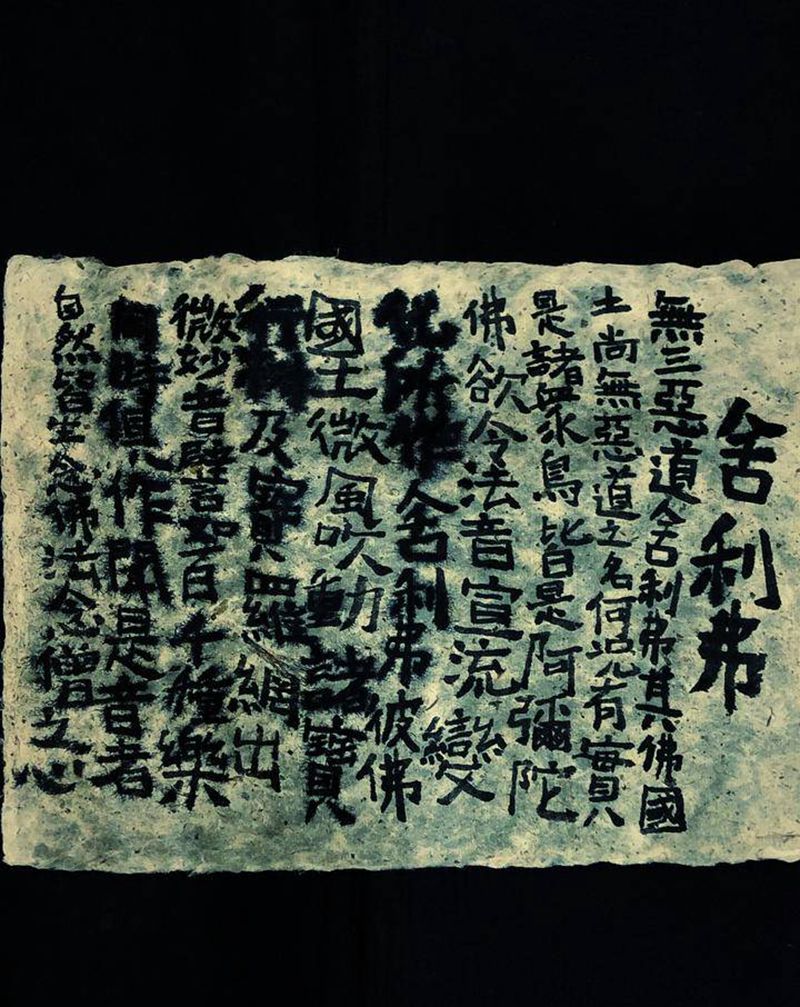 舍利弗
無三惡道舍利弗其佛國
土尚無惡道之名何況有實
是諸眾鳥皆是阿彌陀
佛欲令法音宣流變
化所作舍利弗彼佛
國土微風吹動諸寶
行樹及寶羅網出
微妙音譬如百千種樂
同時俱作聞是音者
自然皆生念佛法念僧之心